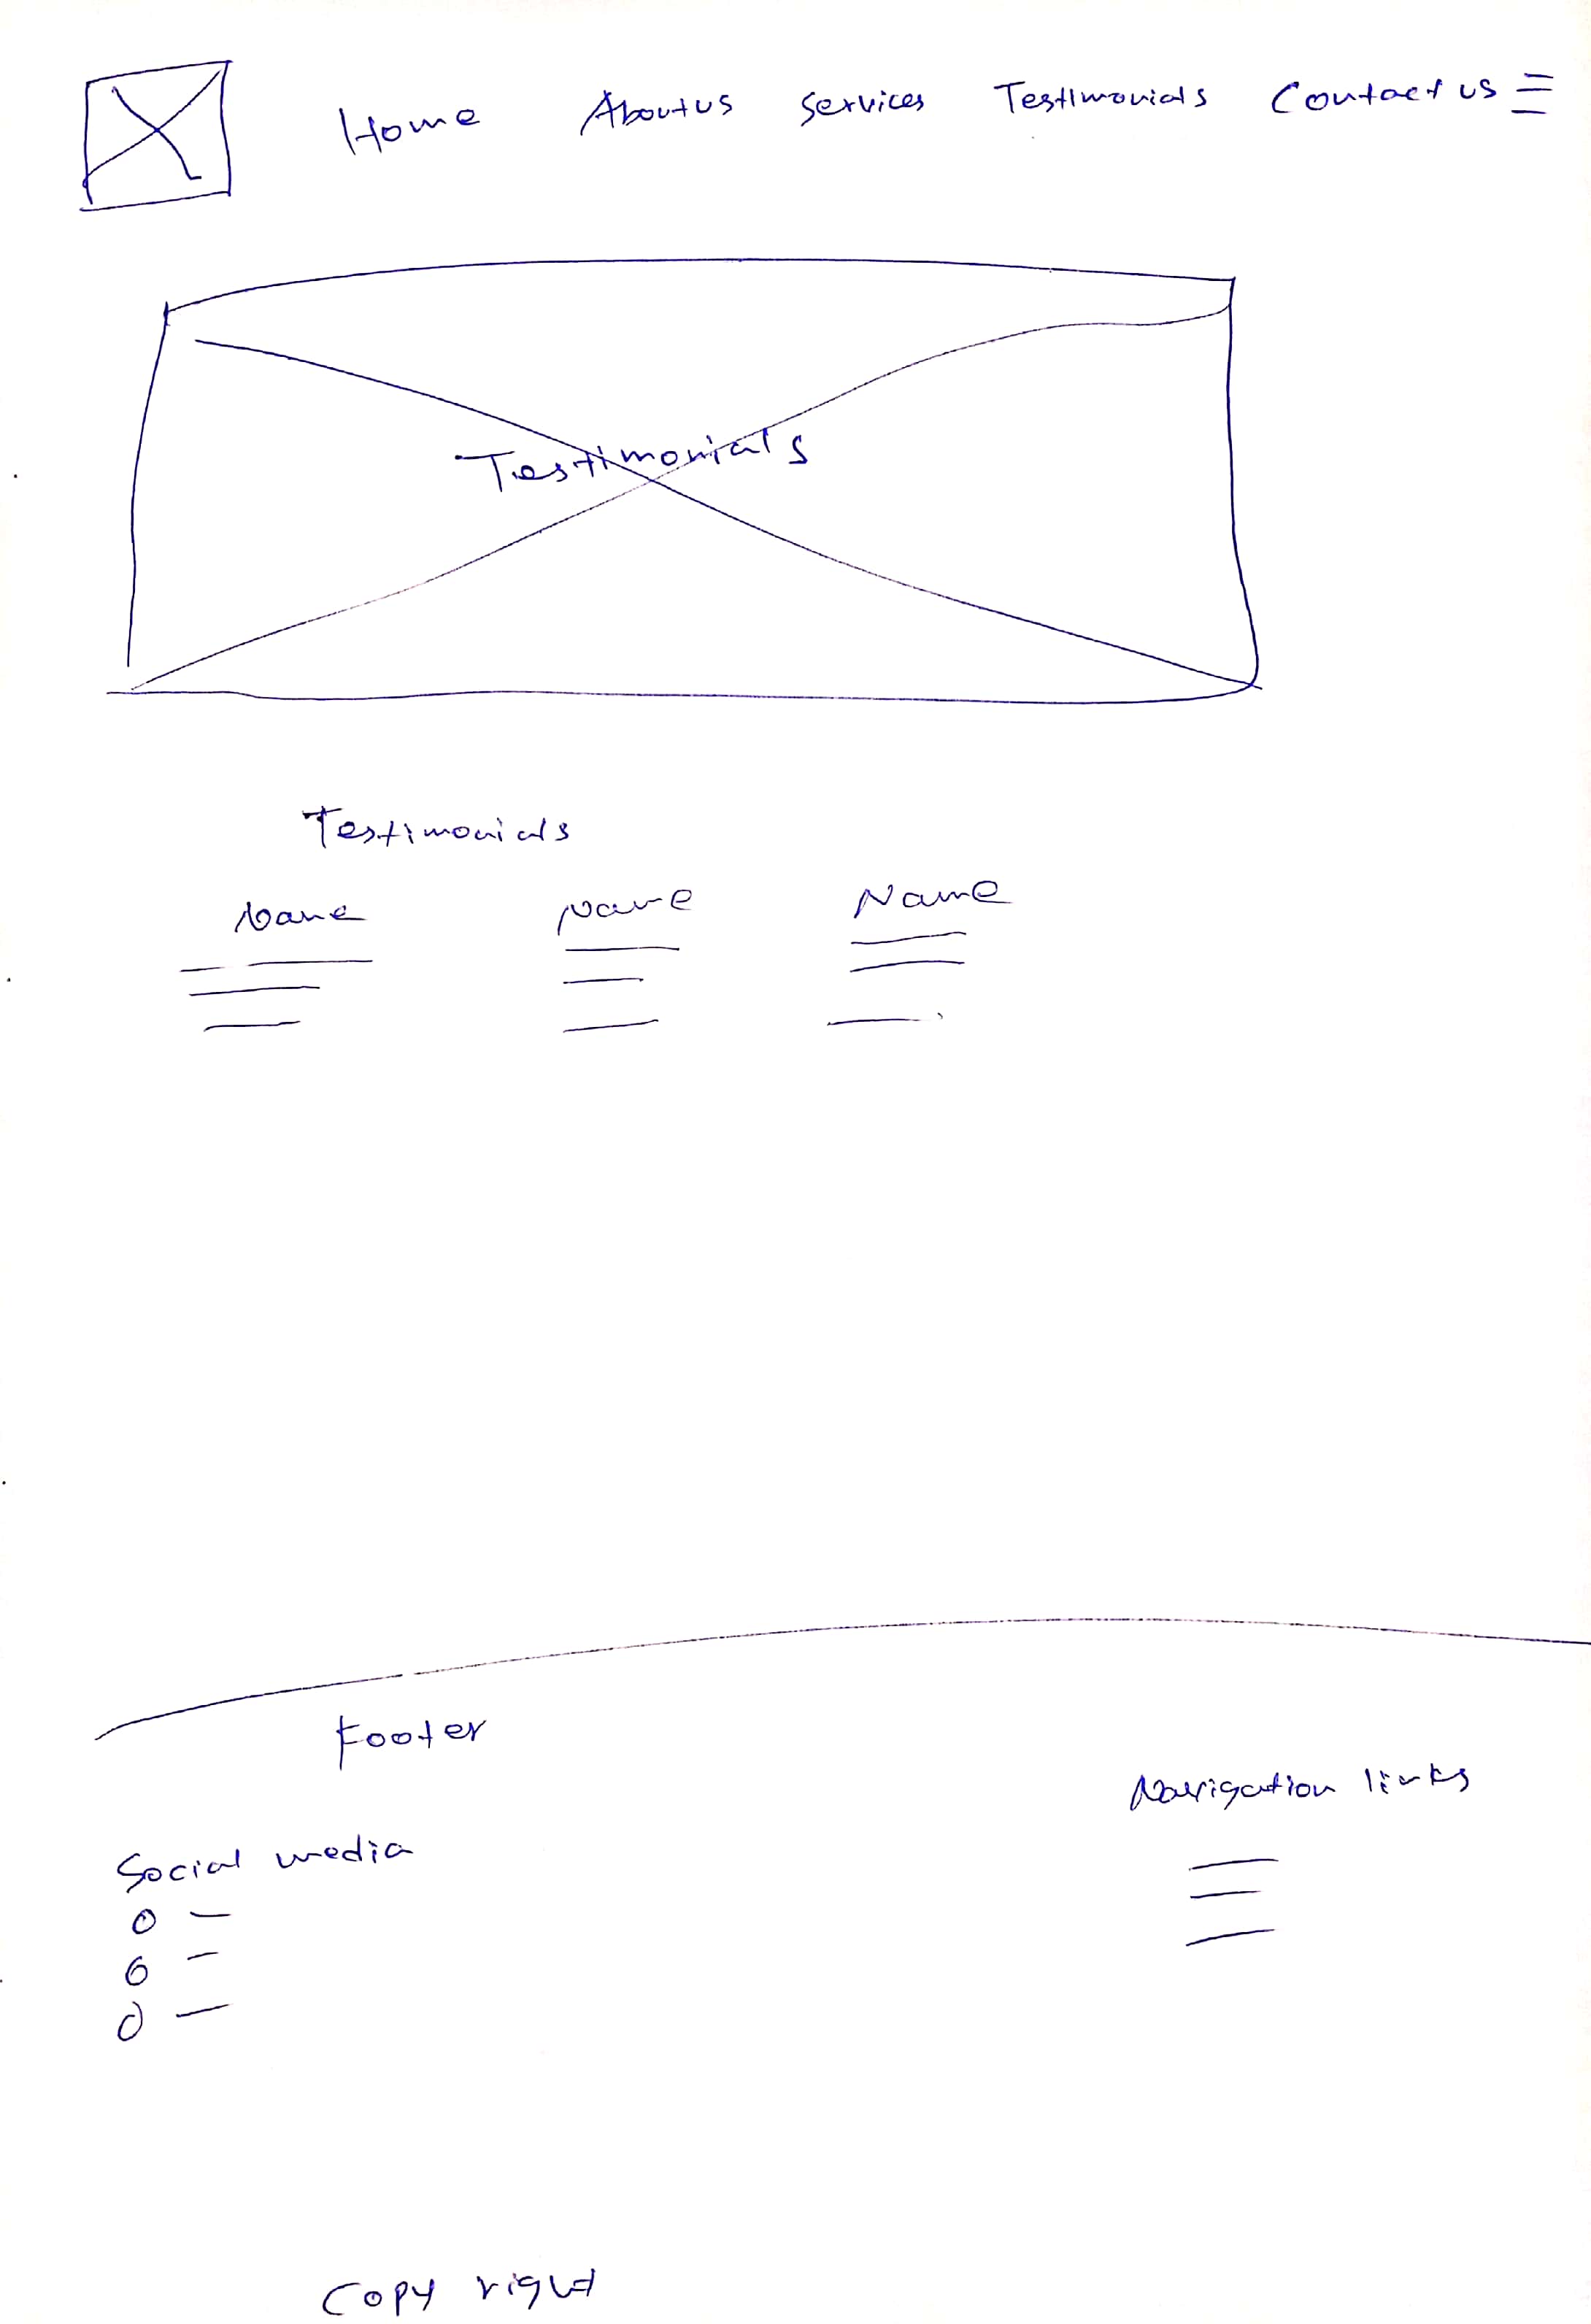 Home Aboutus Services Testimonials Contact us
Testimonials
Testimonials
Name Name Name
Footer
Navigation links
Social media
Copy right